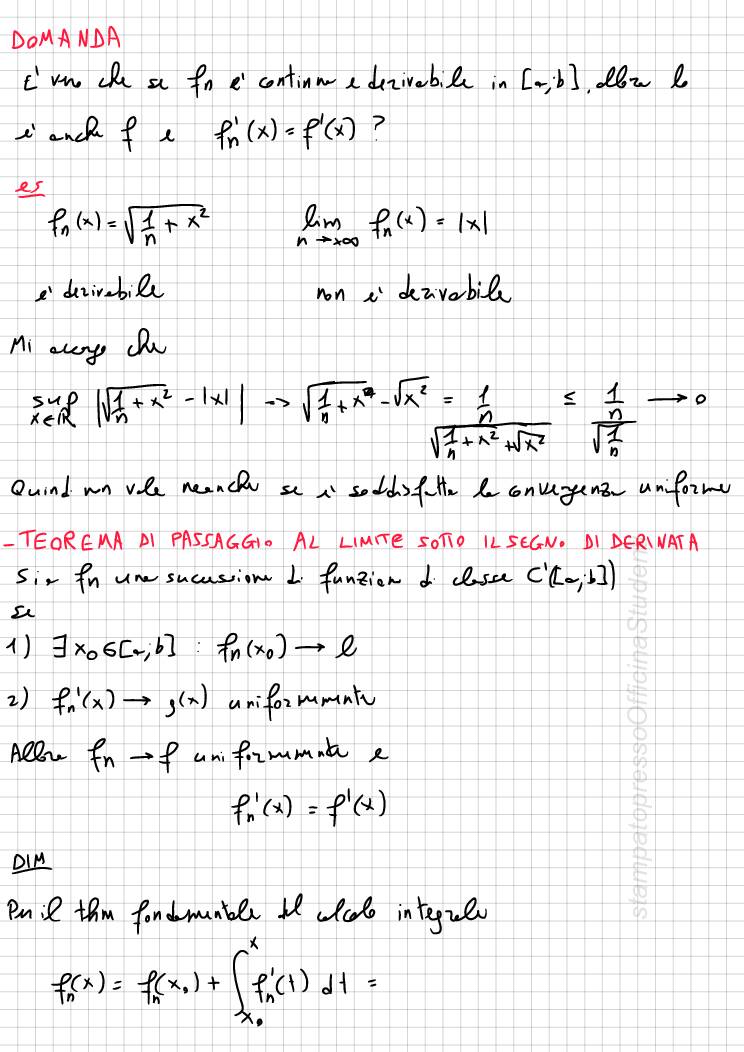 DOMANDA
E' vero che se fn e' continua e derivabile in [a;b], allora lo
e' anche f e fn'(x) = f'(x) ?
es
fn(x) = √(1/n + x²) lim n→+∞ fn(x) = |x|
e' derivabile non e' derivabile
Mi accorgo che
sup x∈ℝ |√(1/n + x²) - |x|| -> √(1/n + x²) - √x² = (1/n)/(√(1/n + x²) + √x²) ≤ (1/n)/√(1/n) → 0
Quindi non vale neanche se e' soddisfatta la convergenza uniforme
- TEOREMA DI PASSAGGIO AL LIMITE SOTTO IL SEGNO DI DERIVATA
Sia fn una successione di funzioni di classe C'([a;b])
se
1) ∃ x₀ ∈ [a;b] : fn(x₀) → l
2) fn'(x) → g(x) uniformemente
Allora fn → f uniformemente e
fn'(x) = f'(x)
DIM
Per il thm fondamentale del calcolo integrale
fn(x) = fn(x₀) + ∫ₓ₀ˣ fn'(t) dt =
stampatopressoOfficinaStudenti